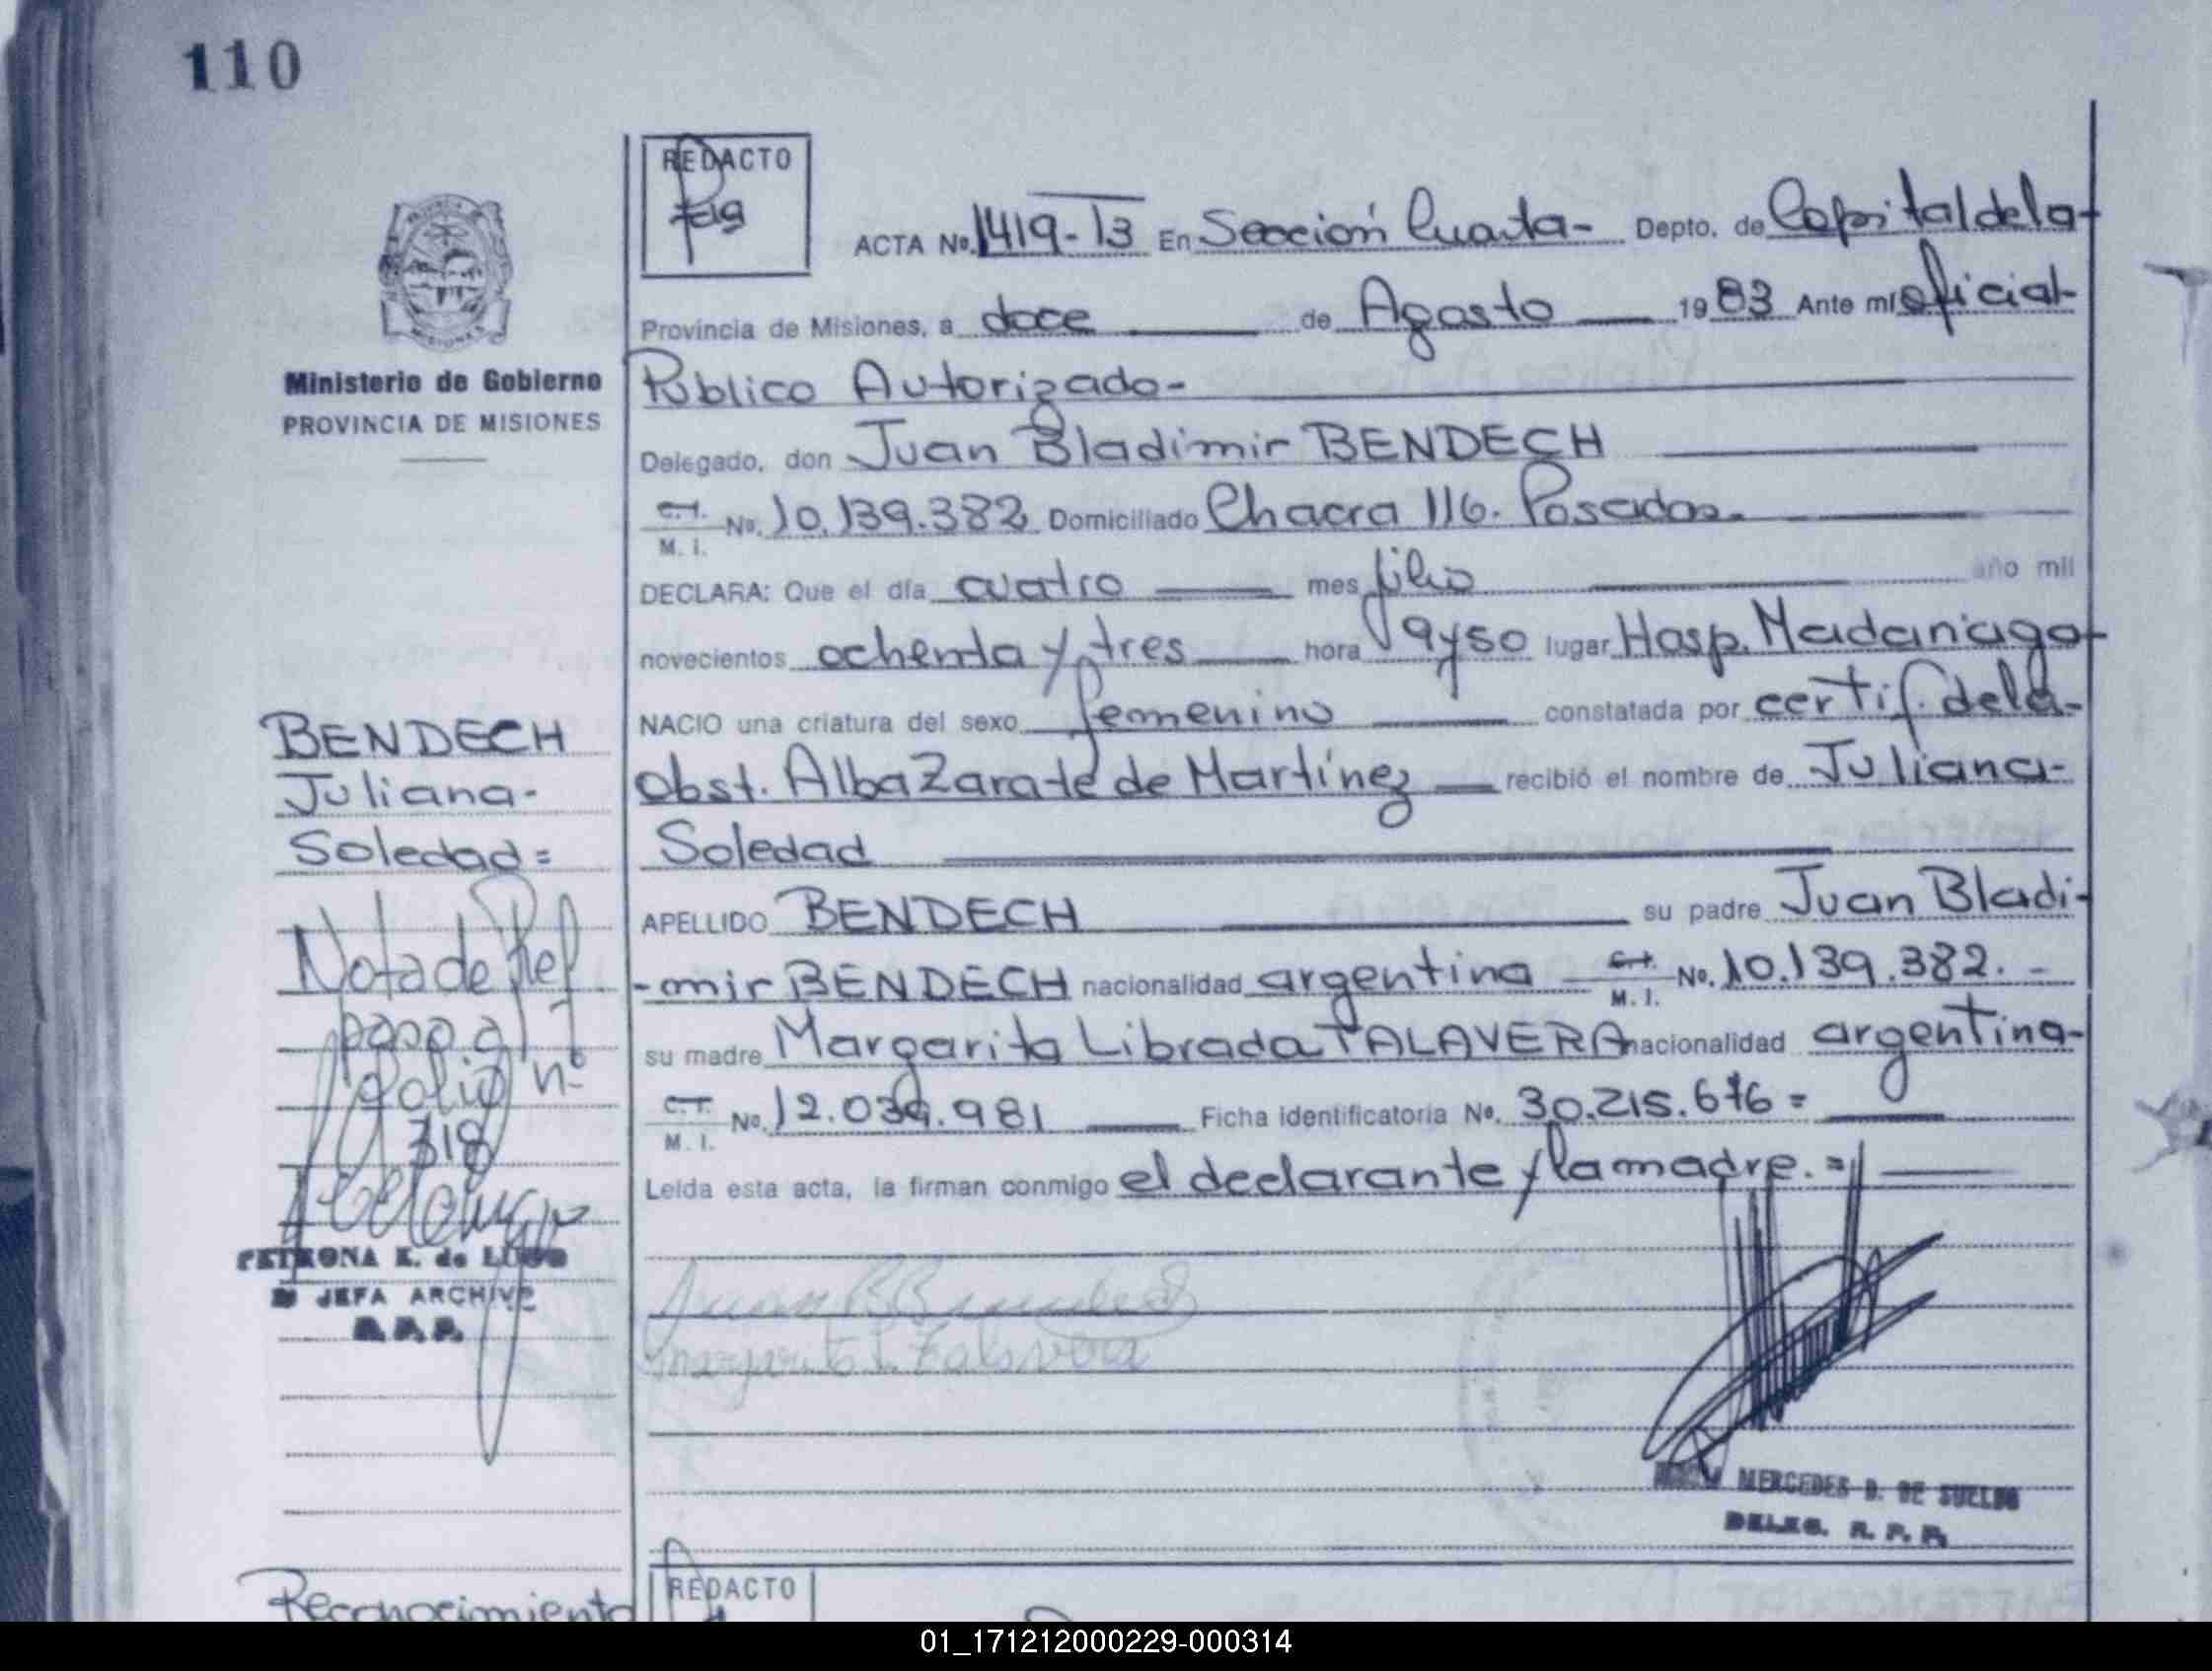 110
REDACTO
ACTA Nº. 1419-13 En Sección Cuarta- Depto. de Capital de la-
Provincia de Misiones, a doce de Agosto 1983 Ante mi oficial-
Ministerio de Gobierno
PROVINCIA DE MISIONES
Público Autorizado-
Delegado, don Juan Bladimir BENDECH
C.I. M. I. Nº. 10.139.382 Domiciliado Chacra 116. Posadas.
DECLARA: Que el día cuatro mes julio año mil
novecientos ochenta y tres hora 9y50 lugar Hosp. Madariaga-
NACIO una criatura del sexo femenino constatada por certif. de la-
obst. Alba Zarate de Martínez recibió el nombre de Juliana-
Soledad
APELLIDO BENDECH su padre Juan Bladi-
-mir BENDECH nacionalidad argentina C.I. M. I. Nº. 10.139.382. -
su madre Margarita Librada TALAVERA nacionalidad argentina-
C.I. M. I. Nº. 12.039.981 Ficha identificatoria Nº. 30.215.676 =
Leída esta acta, la firman conmigo el declarante y la madre. =
BENDECH
Juliana-
Soledad=
Nota de Ref
paso al
folio nº
318
PETRONA E. de LUGO
JEFA ARCHIVO
R.P.P.
Margarita L. Talavera
MERCEDES D. DE SUELDO
DELEG. R. P. P.
Reconocimiento
REDACTO
01_171212000229-000314